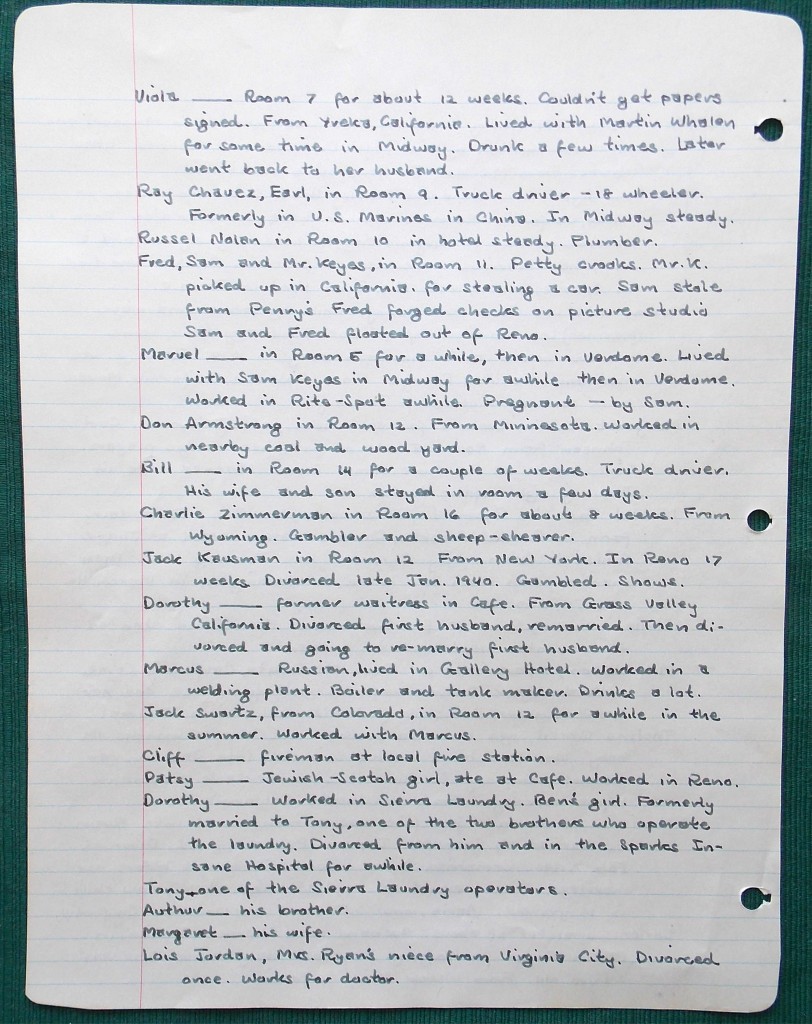 Viola —— Room 7 for about 12 weeks. Couldn't get papers
signed. From Yreka, California. Lived with Martin Whalen
for some time in Midway. Drunk a few times. Later
went back to her husband.
Ray Chavez, Earl, in Room 9. Truck driver - 18 wheeler.
Formerly in U.S. Marines in China. In Midway steady.
Russel Nolan in Room 10 in hotel steady. Plumber.
Fred, Sam and Mr. Keyes, in Room 11. Petty crooks. Mr. K.
picked up in California. for stealing a car. Sam stole
from Penny's Fred forged checks on picture studio
Sam and Fred floated out of Reno.
Marvel —— in Room 5 for a while, then in Verdome. Lived
with Sam Keyes in Midway for awhile then in Verdome.
Worked in Rite-Spot awhile. Pregnant — by Sam.
Don Armstrong in Room 12. From Minnesota. Worked in
nearby coal and wood yard.
Bill —— in Room 14 for a couple of weeks. Truck driver.
His wife and son stayed in room a few days.
Charlie Zimmerman in Room 16 for about 8 weeks. From
Wyoming. Gambler and sheep-shearer.
Jack Kausman in Room 12 From New York. In Reno 17
weeks Divorced late Jan. 1940. Gambled. Shows.
Dorothy —— former waitress in Cafe. From Grass Valley
California. Divorced first husband, remarried. Then di-
vorced and going to re-marry first husband.
Marcus —— Russian, lived in Gallery Hotel. Worked in a
welding plant. Boiler and tank maker. Drinks a lot.
Jack Swartz, from Colorado, in Room 12 for awhile in the
summer. Worked with Marcus.
Cliff —— fireman at local fire station.
Patsy —— Jewish-Scotch girl, ate at Cafe. Worked in Reno.
Dorothy —— Worked in Sierra Laundry. Ben's girl. Formerly
married to Tony, one of the two brothers who operate
the laundry. Divorced from him and in the Sparks In-
sane Hospital for awhile.
Tony — one of the Sierra Laundry operators.
Authur — his brother.
Margaret — his wife.
Lois Jordan, Mrs. Ryan's niece from Virginia City. Divorced
once. Works for doctor.